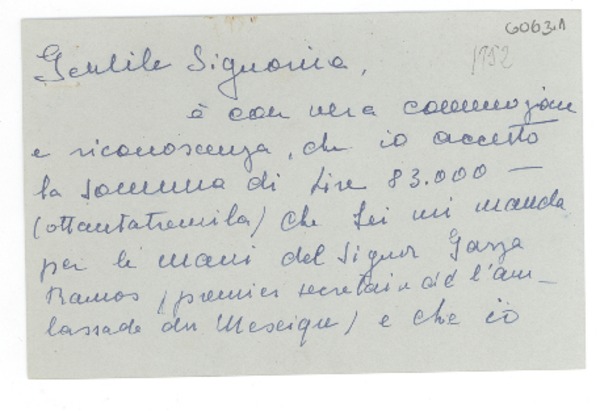 6063.1
1952
Gentile Signorina,
è con vera commozione
e riconoscenza, che io accetto
la somma di Lire 83.000 —
(ottantatremila) che Lei mi manda
per le mani del Signor Garza
Ramos (premier secrétaire de l'am-
bassade du Mexique) e che io